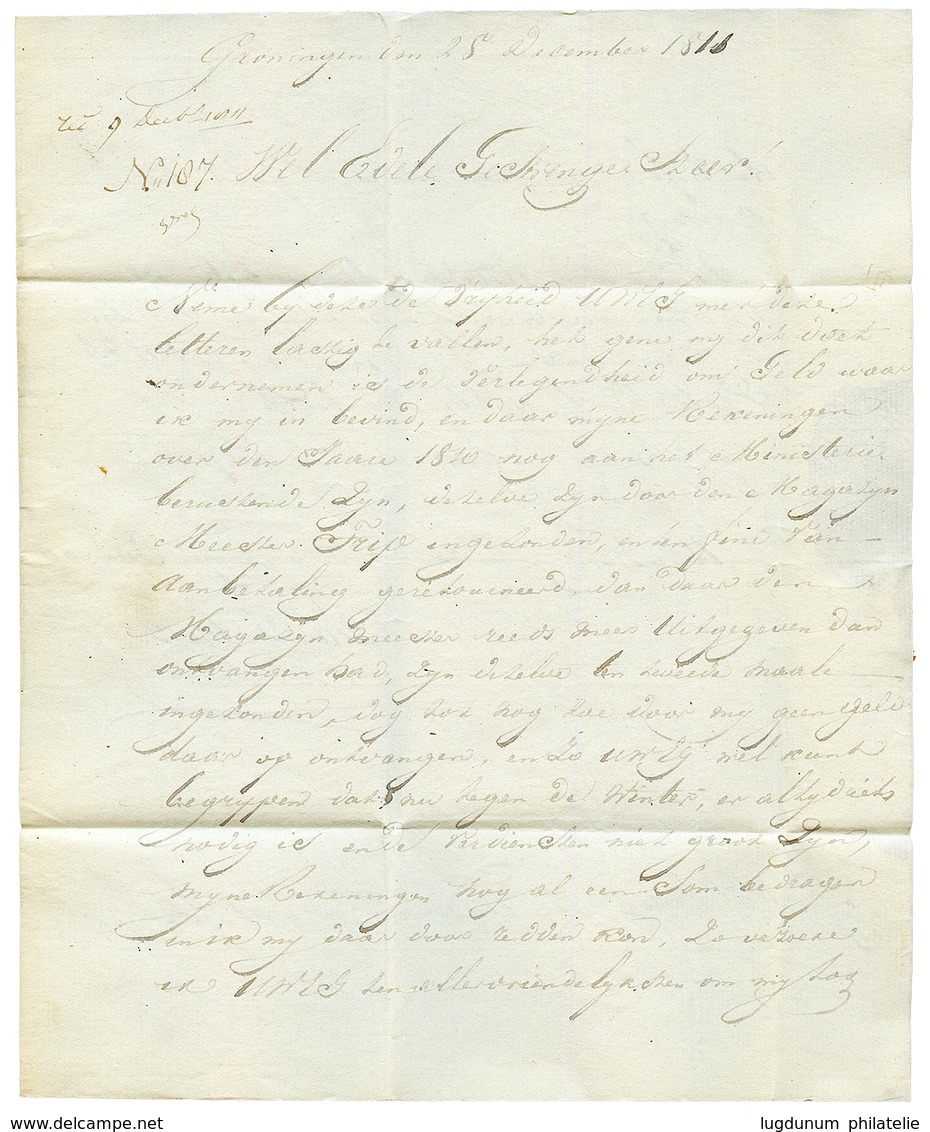 Groningen den 28 December 1811
9 Decbr 1811
N 187. Wel Edele Gestrenge Heer!
Neme by deze de Vryheid UWEG met deze
letteren lastig te vallen, het gene my dit doet
ondernemen is de Verlegendheid om Geld waar
ik my in bevind, en daar myne Rekeningen
over den Jaare 1810 nog aan het Ministerie
berustende Zyn, dezelve Zyn door den Magazyn
Meester Trip ingezonden, en ten fine van
aanbetaling geretourneerd, dan daar den
Magazyn meester reeds meer Uitgegeven dan
ontvangen had, Zyn dezelve ten tweede maale
ingezonden, dog tot nog toe door my geen Geld
daar op ontvangen, en Zo UWEG wel kunt
begrypen dat nu tegen de Winter, er altyd iets
nodig is en de Verdiensten niet groot Zyn,
myne Rekeningen nog al een Som bedragen
en ik my daar door redden kon, Zo verzoeke
ik UWEG ten allervriendelyksten om my tog
delcampe.net
lugdunum philatelie